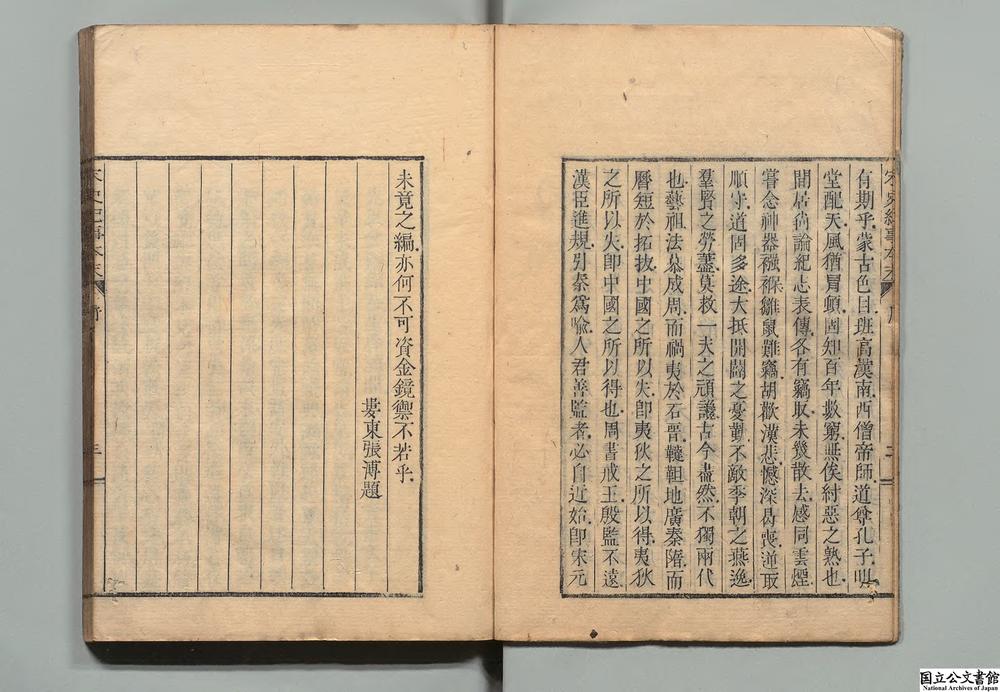 有期乎蒙古色目班高漢南西僧帝師道尊孔子明
堂配天風猶冒頓固知百年數窮無俟紂惡之熟也
間居尚論紀志表傳各有竊取未幾散去感同雲煙
嘗念神器襁褓雛鼠難竊胡歡漢悲憾深曷喪逆取
順守道固多途大抵開闢之憂勤不敵季朝之燕逸
羣賢之勞藎莫救一夫之頑讒古今盡然不獨兩代
也藝祖法慕成周而禍夷於石晉韃靼地廣秦隋而
曆短於拓拔中國之所以失卽夷狄之所以得夷狄
之所以失卽中國之所以得也周書戒王殷監不遠
漢臣進規引秦爲喻人君善監者必自近始卽宋元
宋史紀事本末
未竟之編亦何不可資金鏡禦不若乎
婁東張溥題
宋史紀事本末
三
国立公文書館
National Archives of Japan